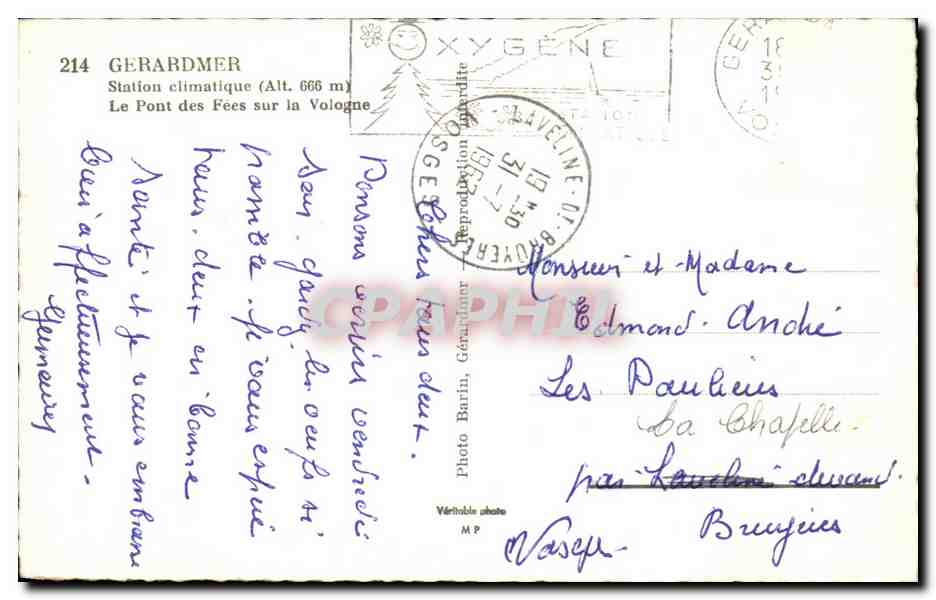 214 GERARDMER
Station climatique (Alt. 666 m)
Le Pont des Fées sur la Vologne
OXYGÈNE
STATION
GERA
18
3
19
LAVELINE-DT-BRUYERES
VOSGES
19 H 30
31 -7
1967
Photo Barin, Gérardmer — Reproduction Interdite
Véritable photo
MP
CPAPHIL
Chers tous deux.
Pensons venir vendredi
soir, gardez les oeufs si
possible. Je vous espère
tous deux en bonne
santé et je vous embrasse
bien affectueusement.
Monsieur et Madame
Edmond André
Les Paulières
La Chapelle.
par Laveline devant
Bruyères
Vosges